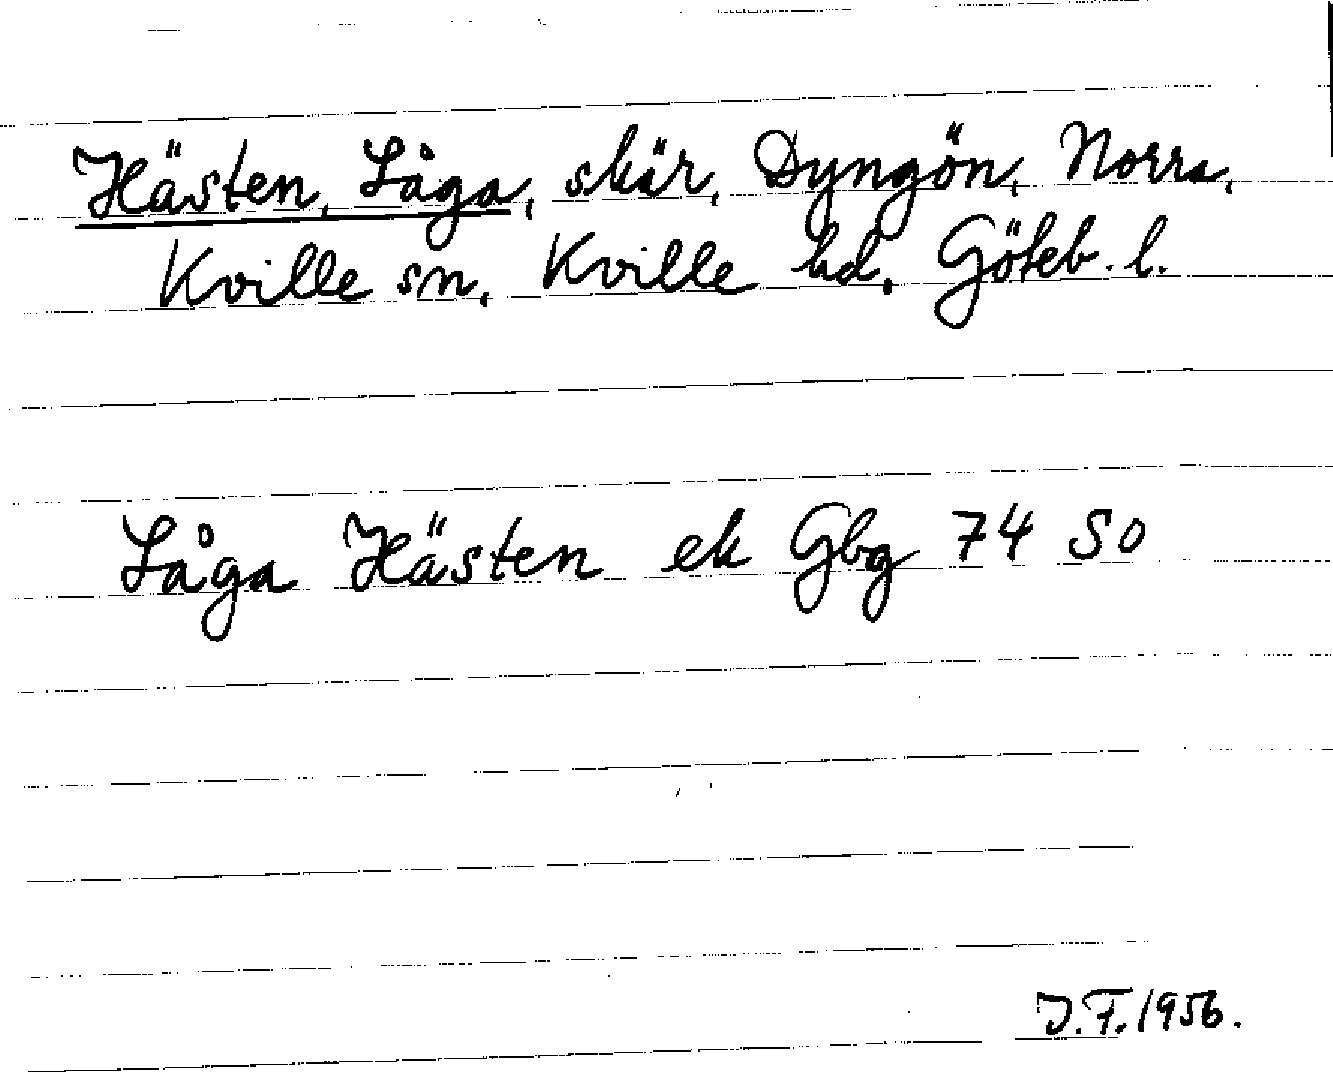 Hästen, Låga, skär, Dyngön, Norra,
Kville sn, Kville hd, Göteb. l.
Låga Hästen ek Gbg 74 So
J.F. 1956.